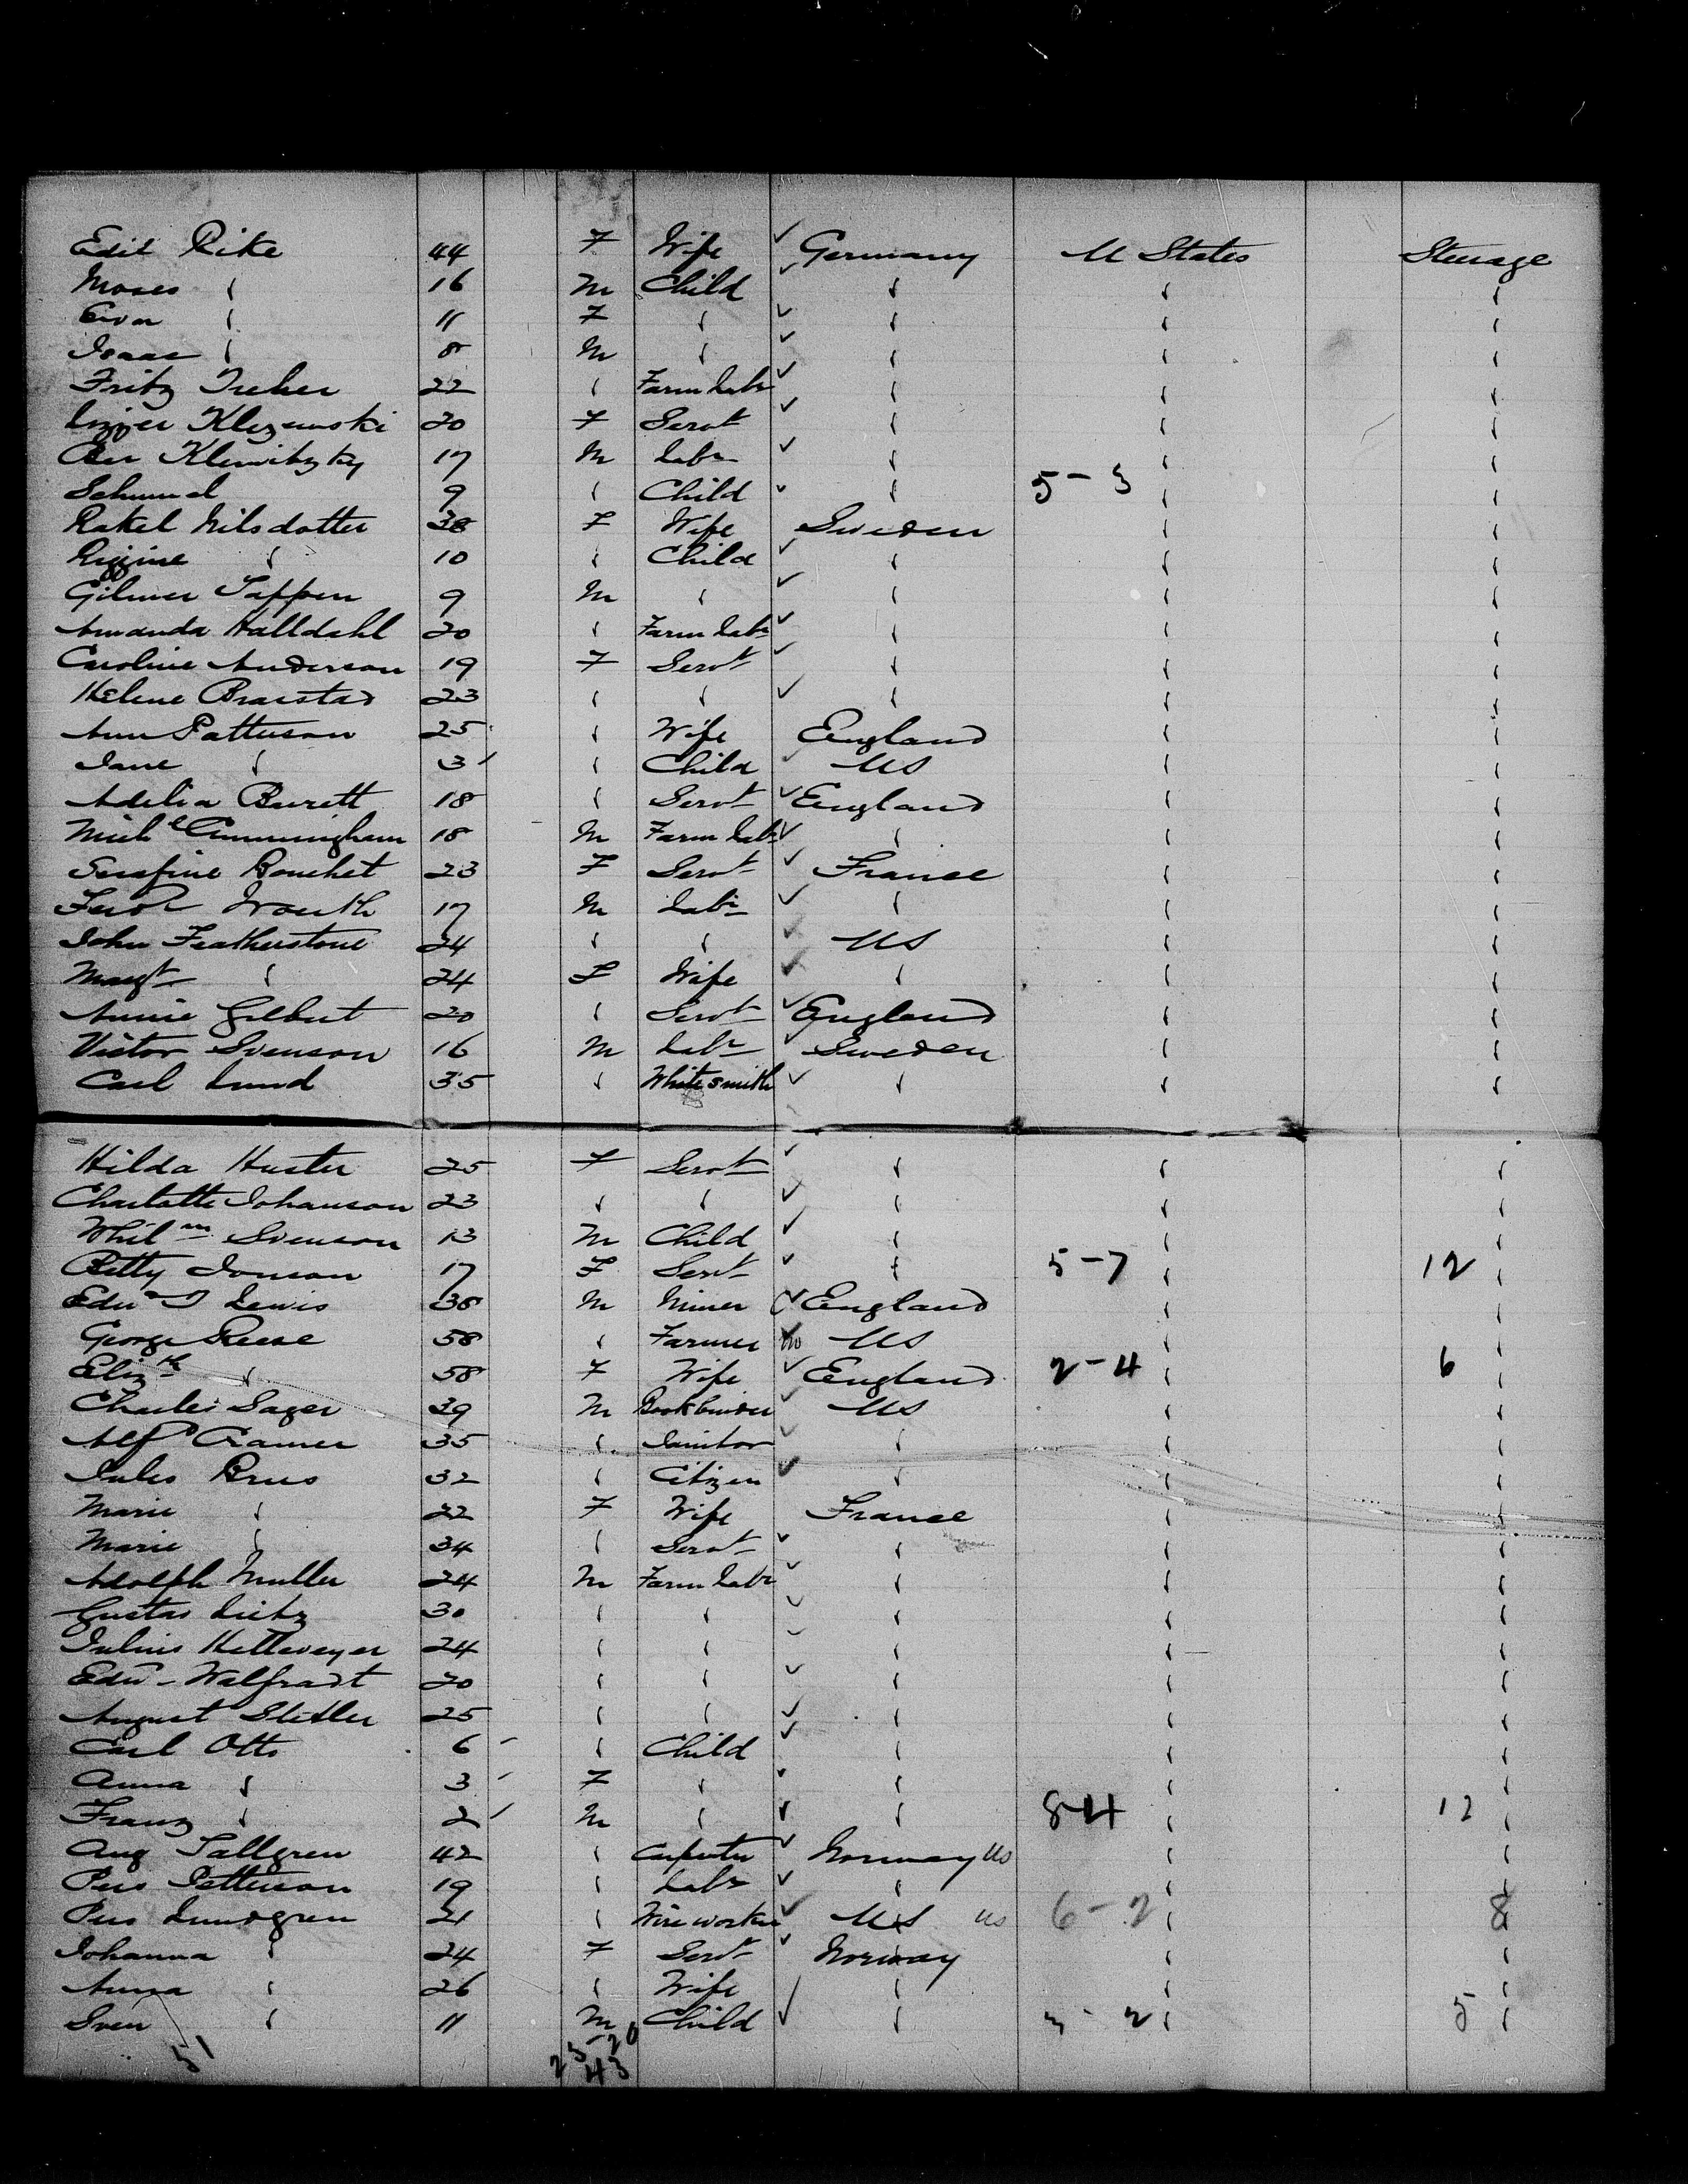 Edil Rike 44 F Wife ✓ Germany U States Steerage
Moses " 16 M Child ✓ " " "
" 11 F " ✓ " " "
Isaac " 8 M " ✓ " " "
Fritz Treher 22 " Farm Labr ✓ " " "
20 F Servt ✓ " " "
Ber 17 M Labr ✓ " " "
Schmuel 9 " Child ✓ " 5-3 " "
Rakel Nilsdotter 38 F Wife Sweden " "
10 " Child ✓ " " "
Gilmer Tappen 9 M " ✓ " " "
Amanda Halldahl 20 " Farm Labr ✓ " " "
Caroline Anderson 19 F Servt ✓ " " "
Helene Braestad 23 " " ✓ " " "
Ann Patterson 25 " Wife England " "
Jane " 3 " Child ✓ US " "
Adelia Burett 18 " Servt ✓ England " "
Michl Cunningham 18 M Farm Labr ✓ " " "
Serafine Bouchet 23 F Servt ✓ France " "
17 M Labr ✓ " " "
John Featherstone 24 " " ✓ US " "
Margt " 24 F Wife ✓ " " "
Annie Gilbert 20 " Servt ✓ England " "
Victor Svenson 16 M Labr ✓ Sweden " "
Carl Lund 35 " Whitesmith ✓ " " "
Hilda Huster 25 F Servt ✓ " " "
Charlotte Johanson 23 " " ✓ " " "
Whilm Svenson 13 M Child ✓ " " "
Betty Jonson 17 F Servt ✓ " 5-7 " 12 "
Edwd T Lewis 38 M Miner ✓ England " "
George Reese 58 " Farmer US " "
Elizth " 58 F Wife ✓ England 2-4 " 6 "
Charles Sager 39 M Bookbinder ✓ US " "
Alfd Cramer 35 " Janitor ✓ " " "
Jules Brus 32 " Citizen ✓ " " "
Marie " 22 F Wife France " "
Marie " 34 " Servt ✓ " " "
Adolph Muller 24 M Farm Labr ✓ " " "
Gustav Lietz 30 " " ✓ " " "
Julius 24 " " ✓ " " "
Edwd Walfradt 20 " " ✓ " " "
August Stetler 25 " " ✓ " " "
Carl Otto 6 " Child ✓ " " "
Anna " 3 F " ✓ " " "
Franz " 2 M " ✓ " 8-4 " 12 "
Aug Tallgren 42 " Carpenter ✓ Norway US " "
Pers Petterson 19 " Labr ✓ " " "
Pers Lundgren 21 " Wireworker ✓ US US 6-2 " 8 "
Johanna " 24 F Servt ✓ Norway " "
Anna " 26 " Wife ✓ " " "
Sven " 11 M Child ✓ " 3-2 " 5 "
51 23-20
43